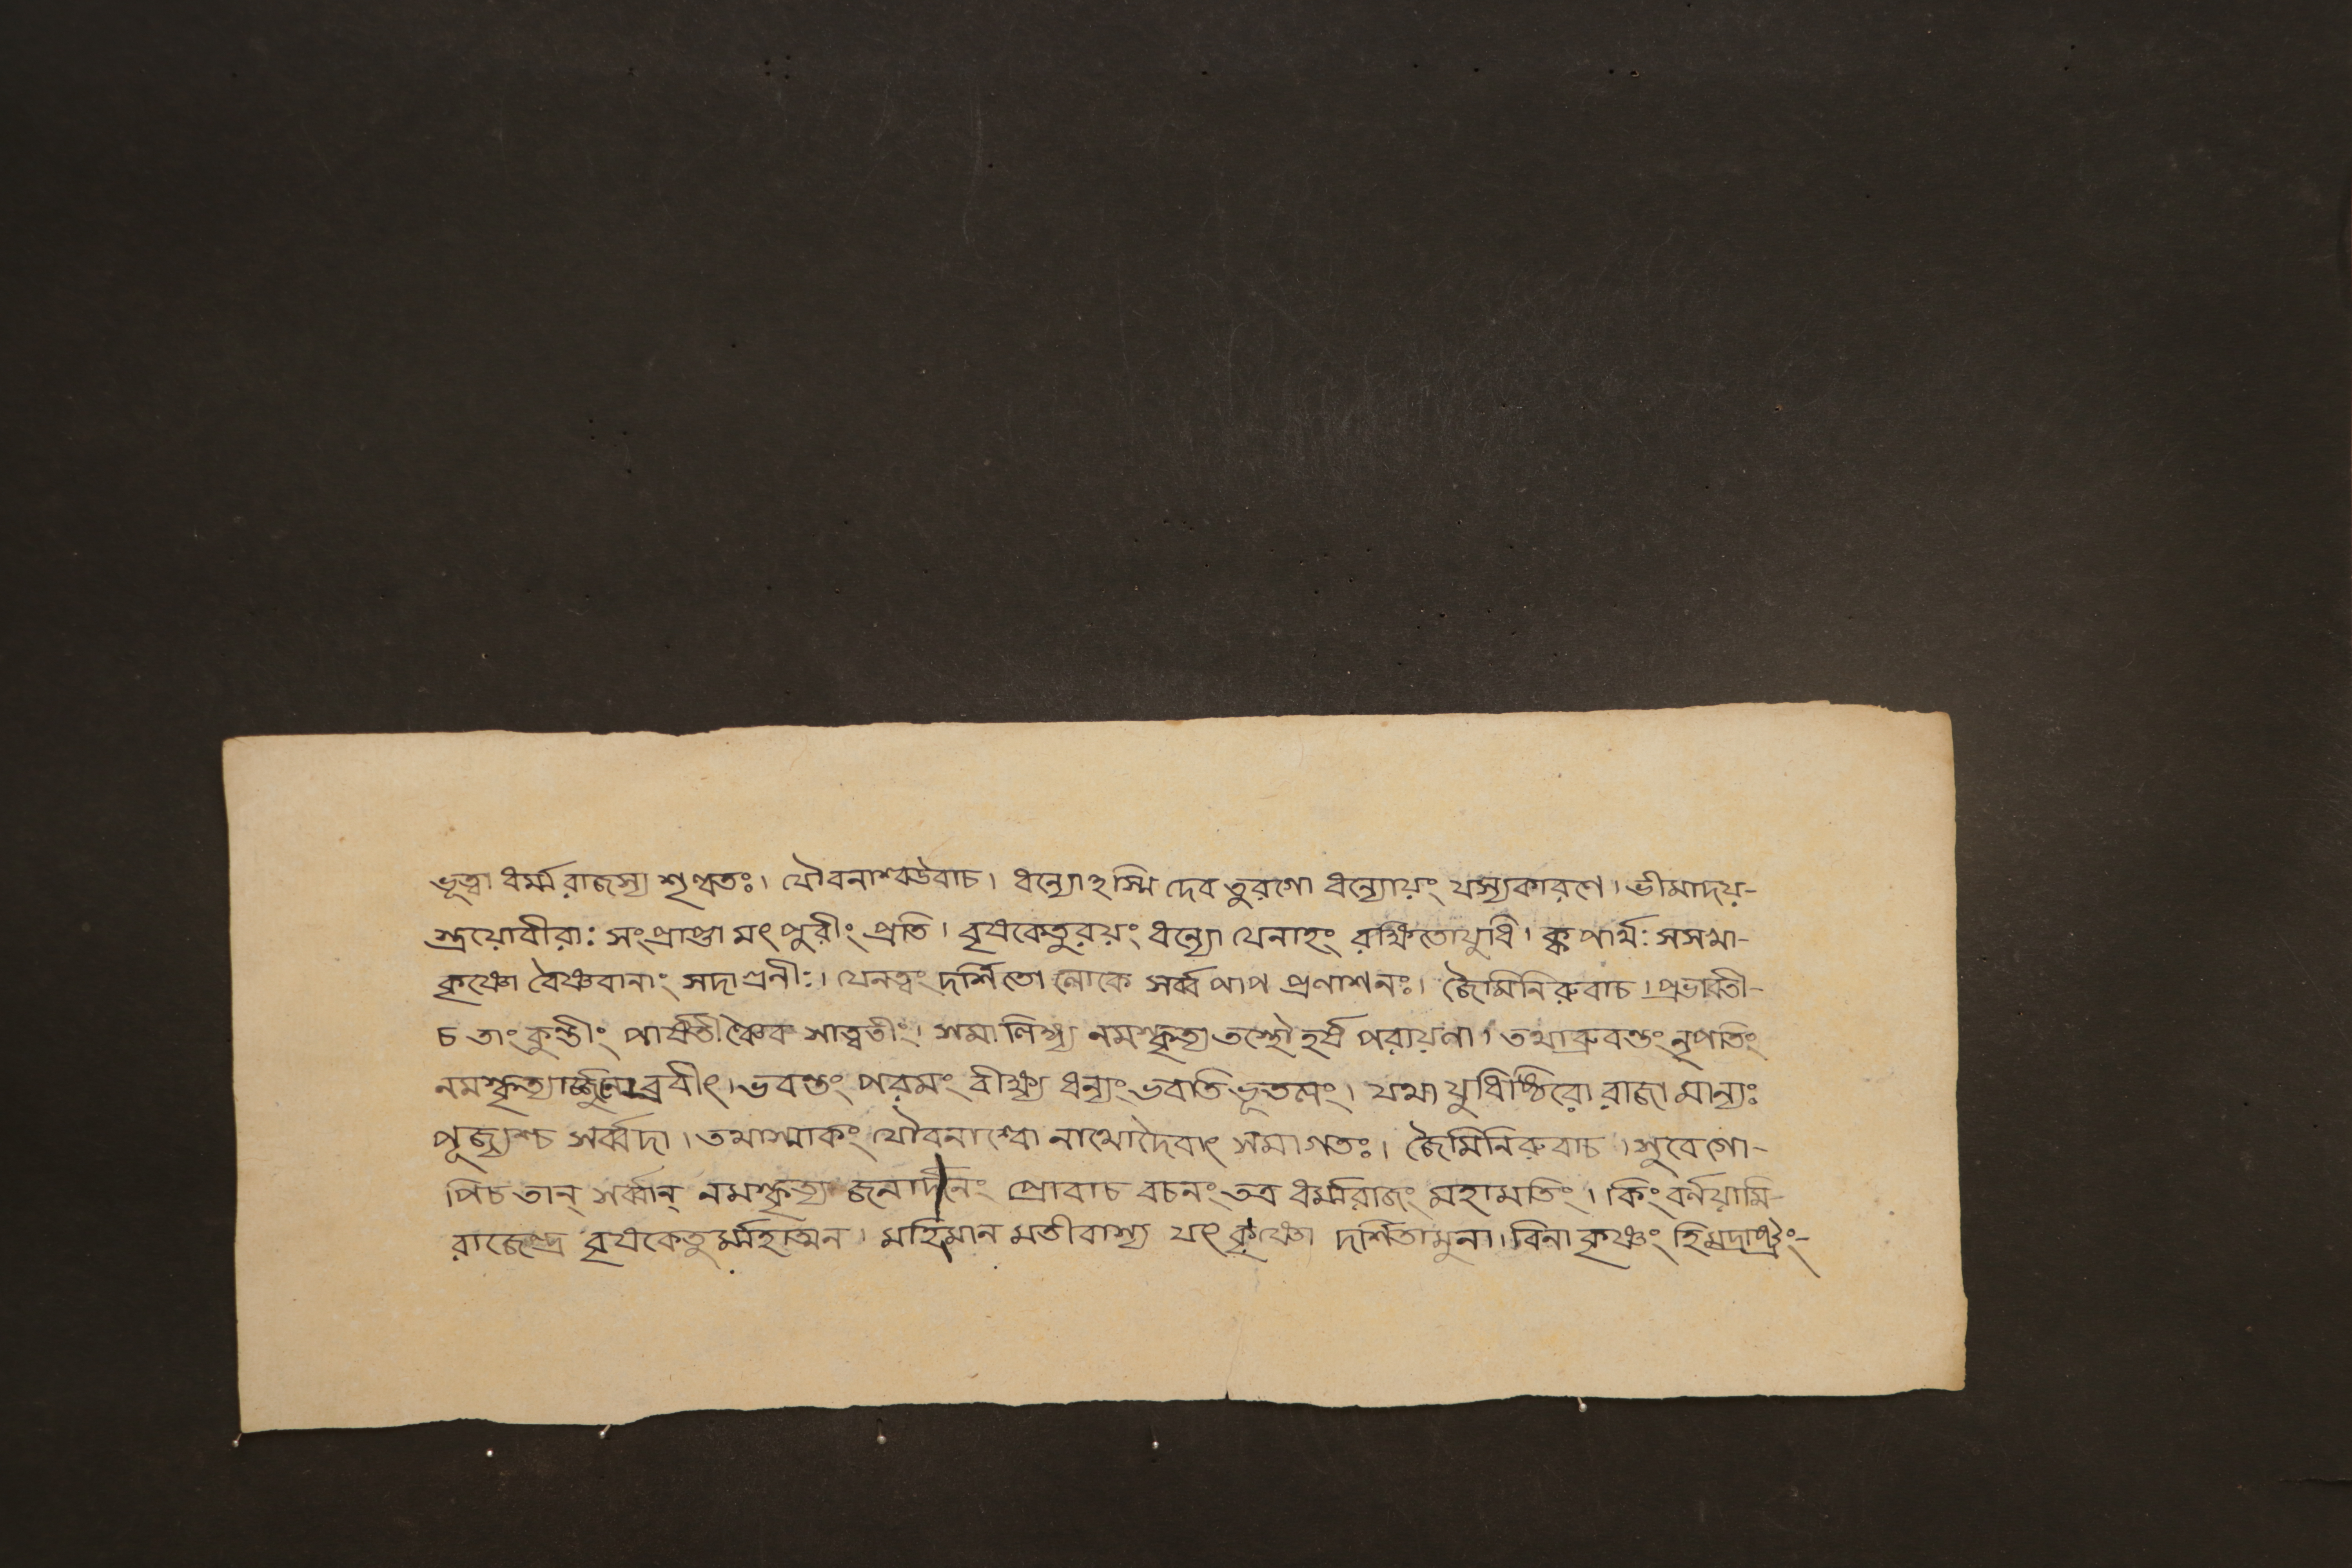 ভূত্বা ধর্ম্মরাজস্য শৃণ্বতঃ। যৌবনাশ্বউবাচ। ধন্যোঽস্মি দেব তুরগো ধন্যোয়ং যস্যকারণে। ভীমাদয়-
স্ত্রয়োবীরা: সংপ্রাপ্তা মৎ পুরীং প্রতি। বৃষকেতুরয়ং ধন্যো যেনাহং রক্ষিতোযুধি। ক্ব পার্থ: সসখা-
কৃষ্ণো বৈষ্ণবানাং সদাগ্রনী:। যেনত্বং দর্শিতো লোকে সর্ব্ব পাপ প্রণাশনঃ। জৈমিনিরুবাচ। প্রভাবতী-
চ তাং কুন্তীং পার্ষতীঞ্চৈব সাত্বতীং। সমালিঙ্গ্য নমস্কৃত্য তস্থৌ হর্ষ পরায়ণা। তথাব্রুবন্তং নৃপতিং
নমস্কৃত্যার্জ্জুনোব্রবীৎ। ভবন্তং পরমং বীক্ষ্য ধন্যং ভবতি ভূতলং। যথা যুধিষ্ঠিরো রাজা মান্যঃ
পূজ্যশ্চ সর্ব্বদা। তথাস্মাকং যৌবনাশ্বো নাথোদৈবাৎ সমাগতঃ। জৈমিনিরুবাচ। সুবেগো-
পিচ তান্ সর্ব্বান্ নমস্কৃত্য জনার্দনং প্রোবাচ বচনং তত্র ধর্ম্মরাজং মহামতিং। কিং বর্নয়ামি-
রাজেন্দ্র বৃষকেতুর্ম্মহাত্মন। মহিমান মতীবাস্য যৎ কৃষ্ণো দর্শিতামুনা। বিনা কৃষ্ণং হি